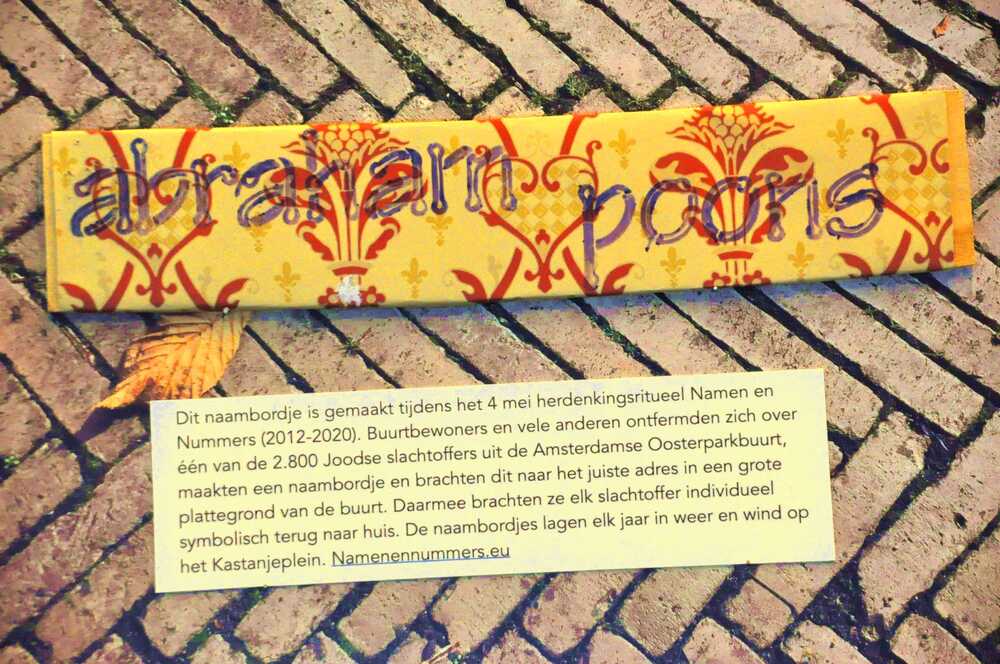 abraham poons
Dit naambordje is gemaakt tijdens het 4 mei herdenkingsritueel Namen en
Nummers (2012-2020). Buurtbewoners en vele anderen ontfermden zich over
één van de 2.800 Joodse slachtoffers uit de Amsterdamse Oosterparkbuurt,
maakten een naambordje en brachten dit naar het juiste adres in een grote
plattegrond van de buurt. Daarmee brachten ze elk slachtoffer individueel
symbolisch terug naar huis. De naambordjes lagen elk jaar in weer en wind op
het Kastanjeplein. Namenennummers.eu